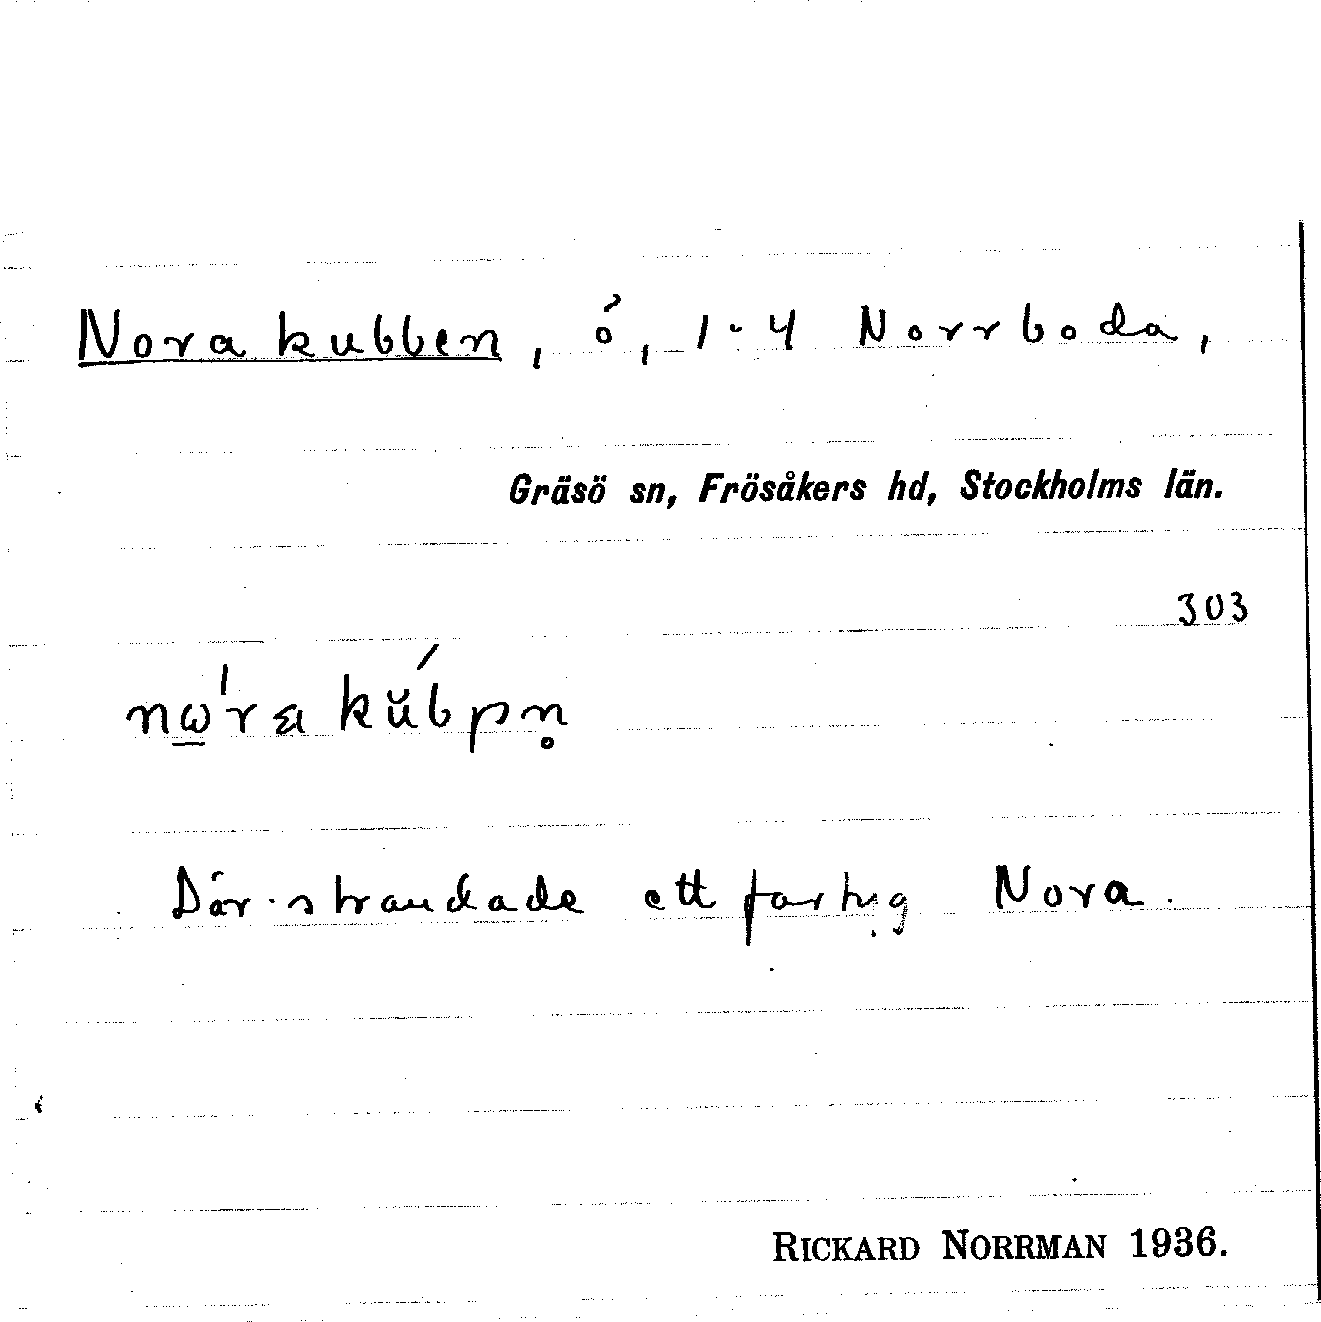 Norakubben, ö, 1-4 Norrboda,
Gräsö sn, Frösåkers hd, Stockholms län.
303
nω̲'ra kŭ́bpn̥
Där strandade ett fartyg Nora.
RICKARD NORRMAN 1936.